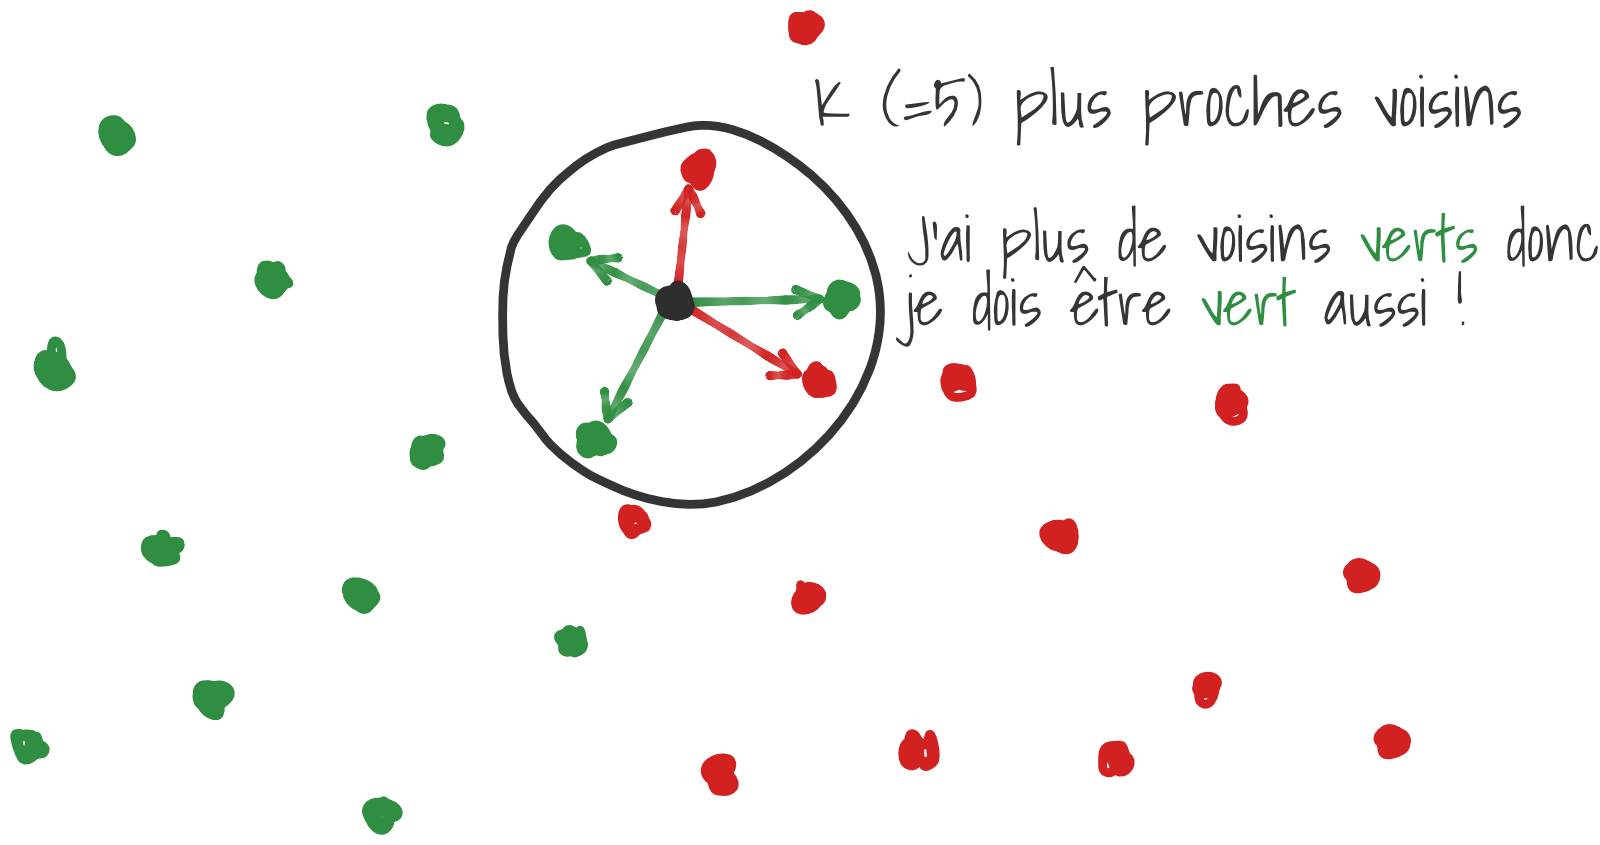 K (=5) plus proches voisins
J'ai plus de voisins verts donc
je dois être vert aussi !